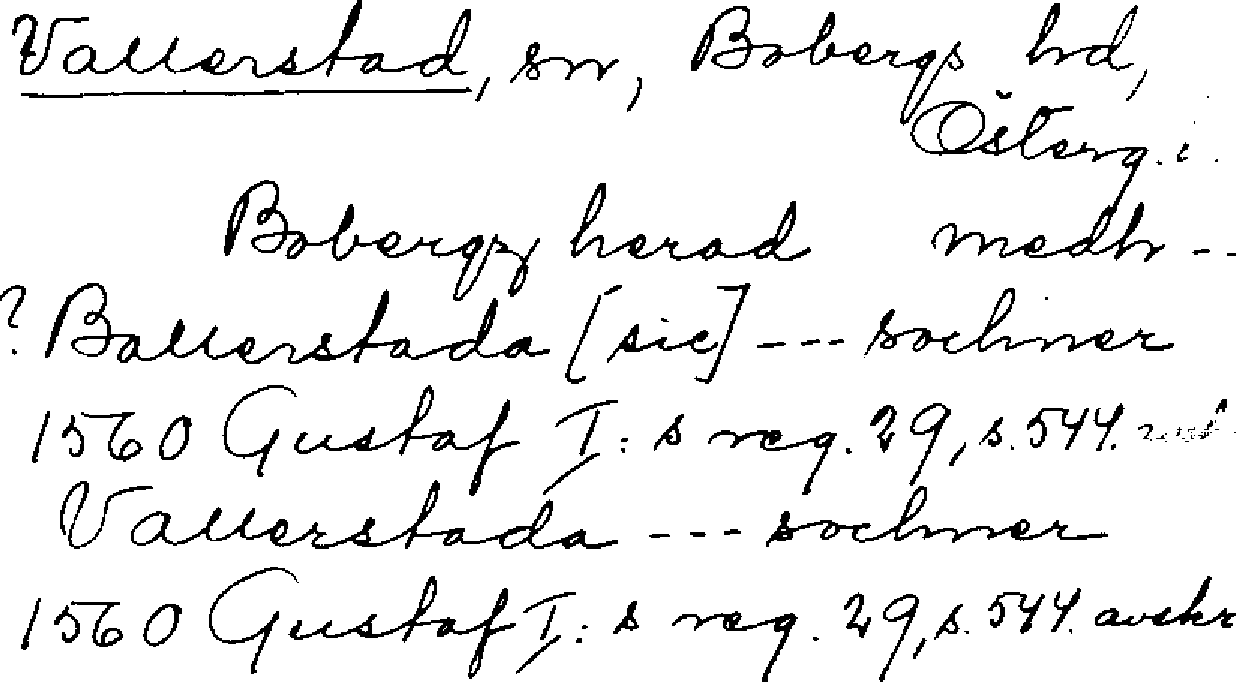 Vallerstad, sn, Bobergs hd,
Österg.
Bobergz herad medh --
? Ballerstada [sic] --- sochner
1560 Gustaf I: s reg. 29, s. 544.
Vallerstada --- sochner
1560 Gustaf I: s reg. 29, s. 544. avskr